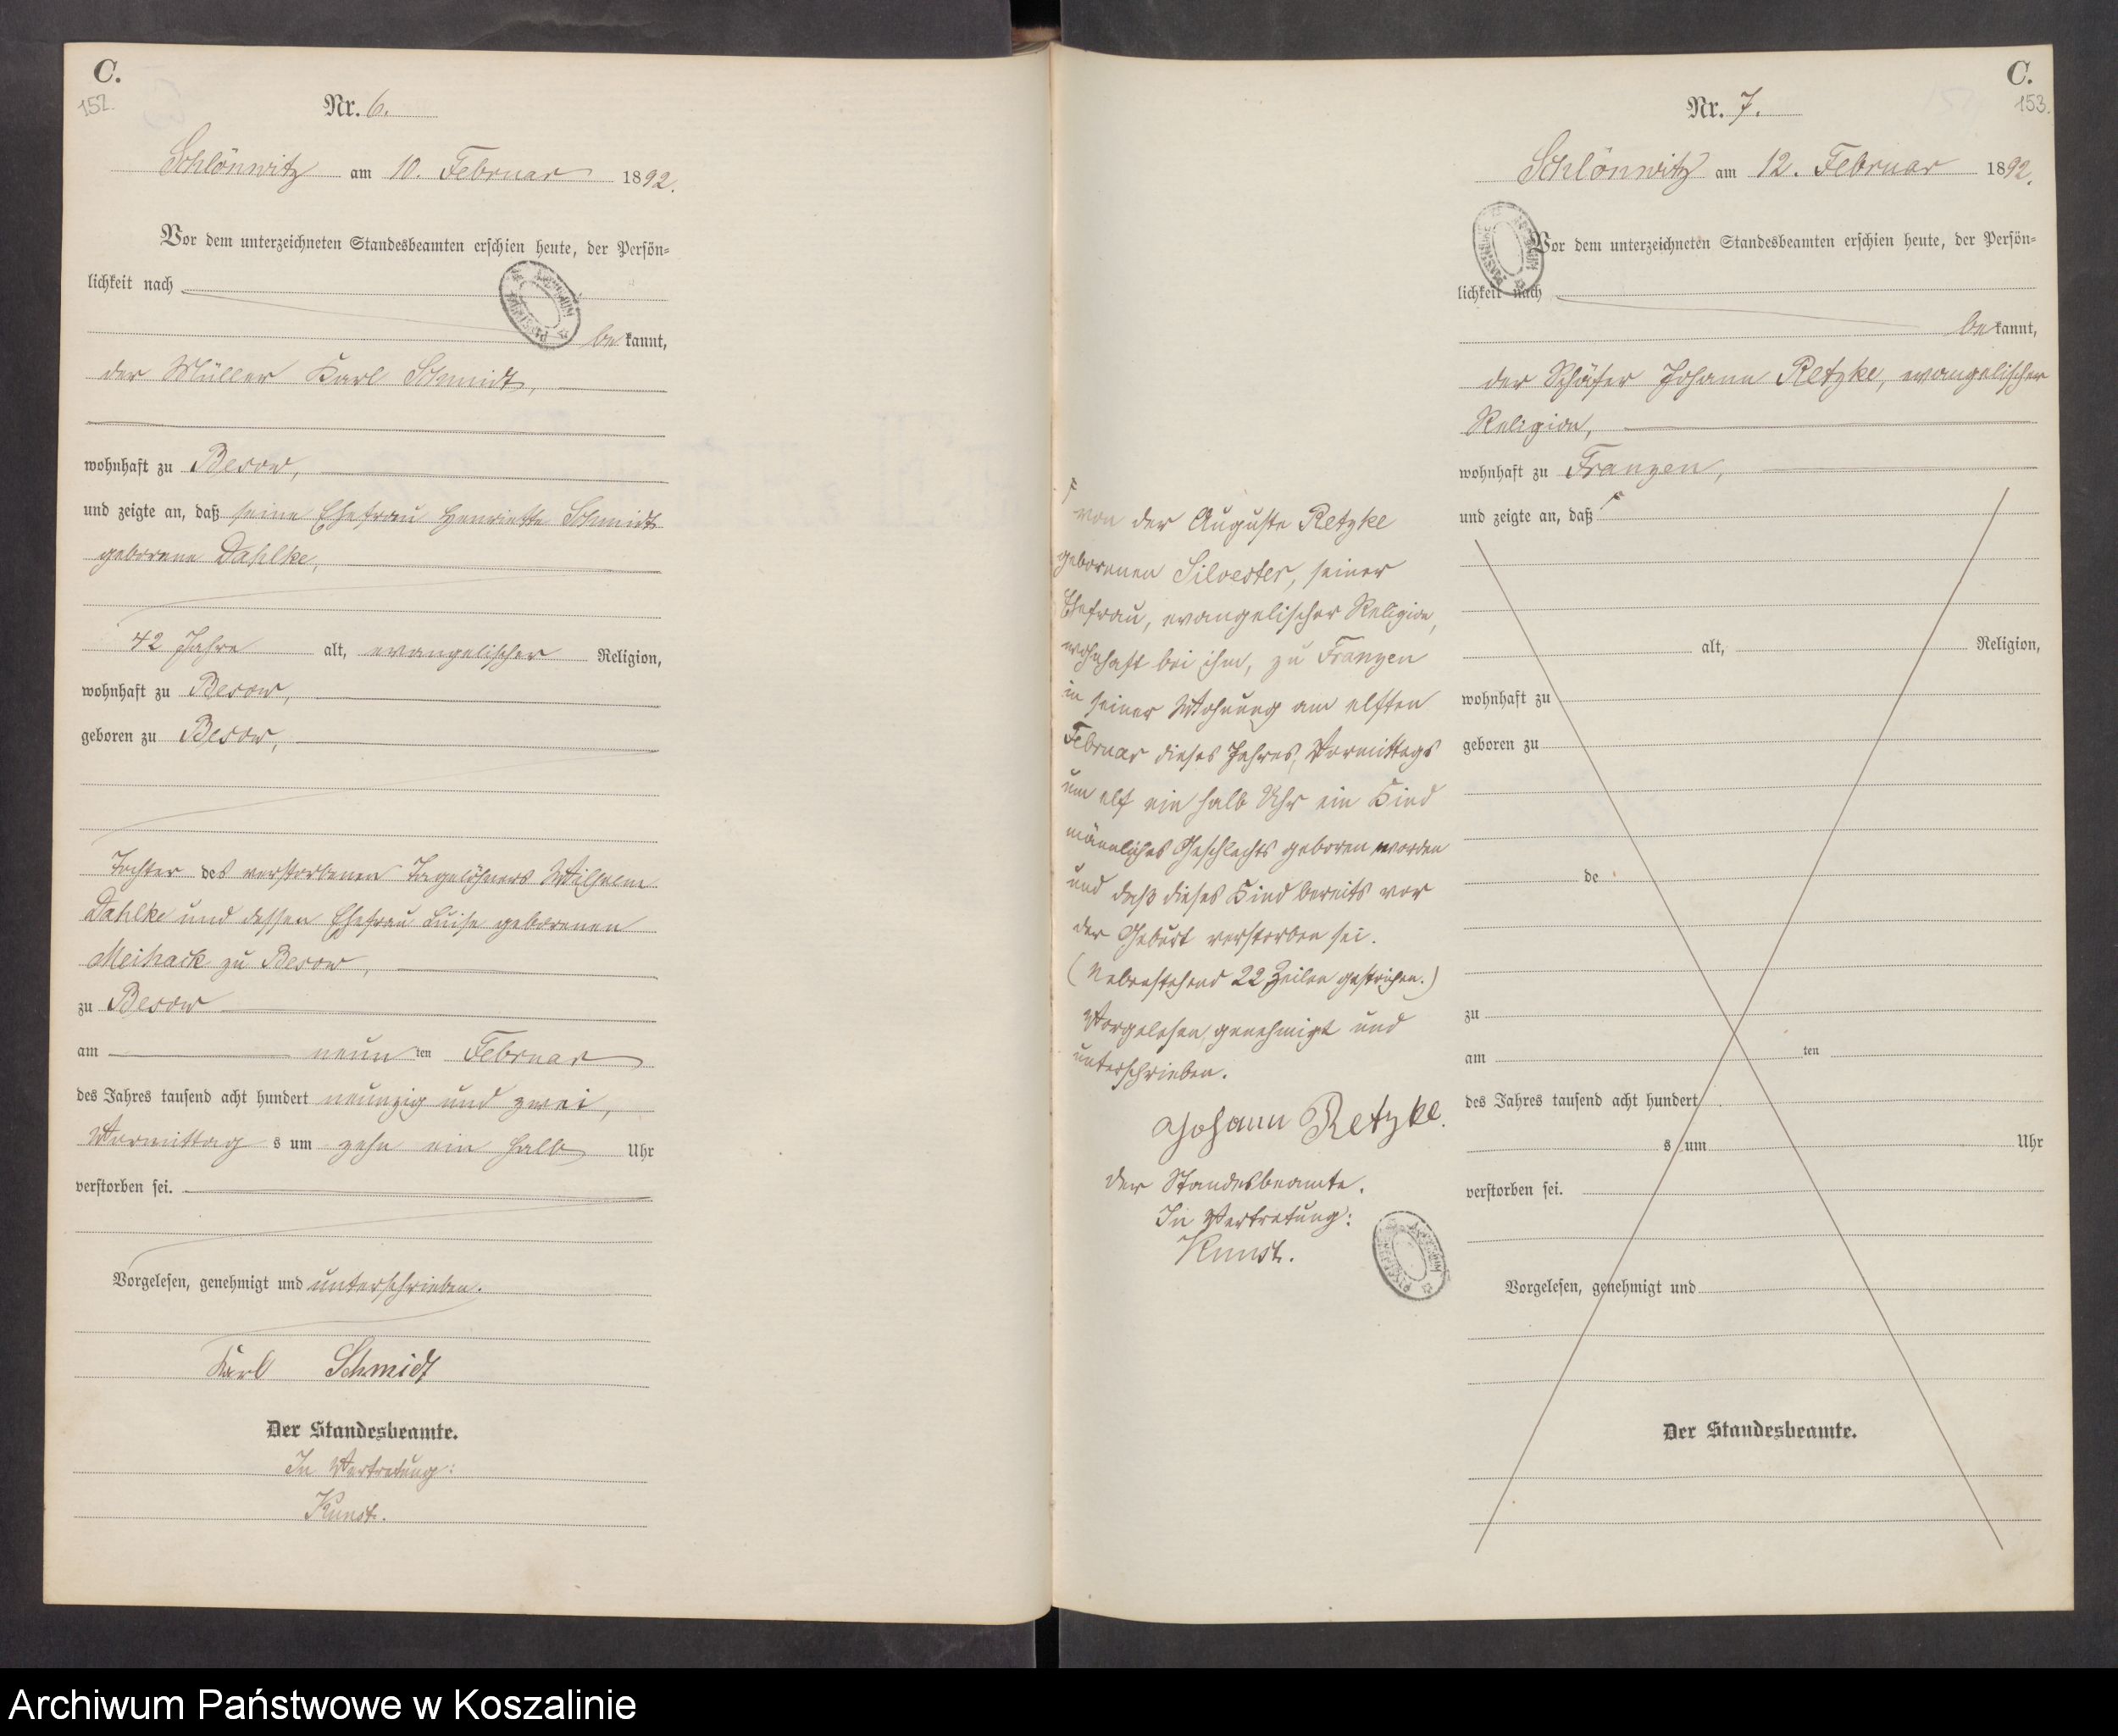 C.
152.
Nr. 6.
Schlönwitz am 10. Februar 1892.
Vor dem unterzeichneten Standesbeamten erschien heute, der Persön-
lichkeit nach
bekannt,
der Müller Karl Schmidt,
wohnhaft zu Besow,
und zeigte an, daß seine Ehefrau Henriette Schmidt
geborene Dahlke,
42 Jahre alt, evangelischer Religion,
wohnhaft zu Besow,
geboren zu Besow,
Tochter des verstorbenen Tagelöhners Wilhelm
Dahlke und dessen Ehefrau Luise geborenen
Meihack zu Besow,
zu Besow
am neun ten Februar
des Jahres tausend acht hundert neunzig und zwei,
Vormittag s um zehn ein halb Uhr
verstorben sei.
Vorgelesen, genehmigt und unterschrieben.
Karl Schmidt
Der Standesbeamte.
In Vertretung:
Kunst.
C.
153.
Nr. 7.
Schlönwitz am 12. Februar 1892.
Vor dem unterzeichneten Standesbeamten erschien heute, der Persön-
lichkeit nach
bekannt,
der Schäfer Johann Retzke, evangelischer
Religion,
wohnhaft zu Franzen,
und zeigte an, daß
von der Auguste Retzke
geborenen Silvester, seiner
Ehefrau, evangelischer Religion,
wohnhaft bei ihm, zu Franzen
in seiner Wohnung am elften
Februar dieses Jahres, Vormittags
um elf ein halb Uhr ein Kind
männliches Geschlechts geboren worden
und daß dieses Kind bereits vor
der Geburt verstorben sei.
(Nebenstehend 22 Zeilen gestrichen.)
Vorgelesen, genehmigt und
unterschrieben.
Johann Retzke.
Der Standesbeamte.
In Vertretung:
Kunst.
alt, Religion,
wohnhaft zu
geboren zu
de
zu
am ten
des Jahres tausend acht hundert
s um Uhr
verstorben sei.
Vorgelesen, genehmigt und
Der Standesbeamte.
Archiwum Państwowe w Koszalinie